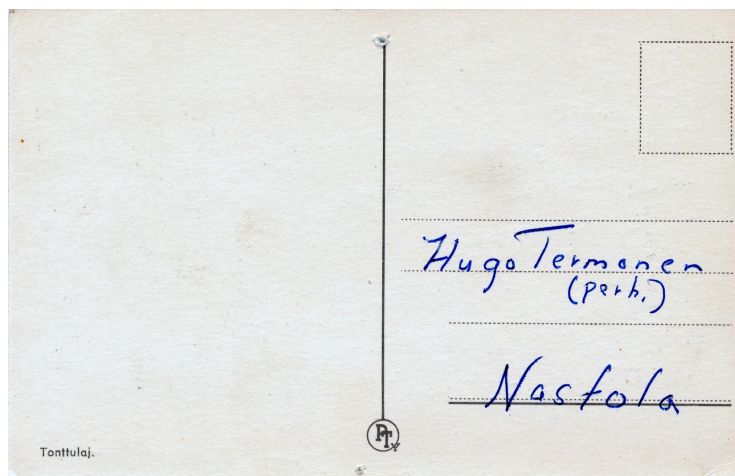 Hugo Termonen
(perh.)
Nastola
Tonttulaj.
PT